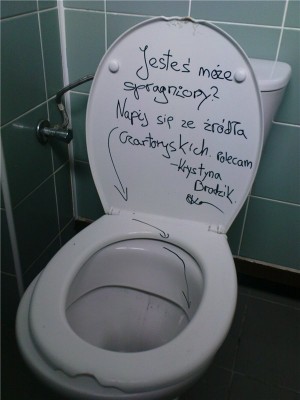 Jesteś może
spragniony?
Napij się ze źródła
Czartoryskich. Polecam
-Krystyna
Brodzik.